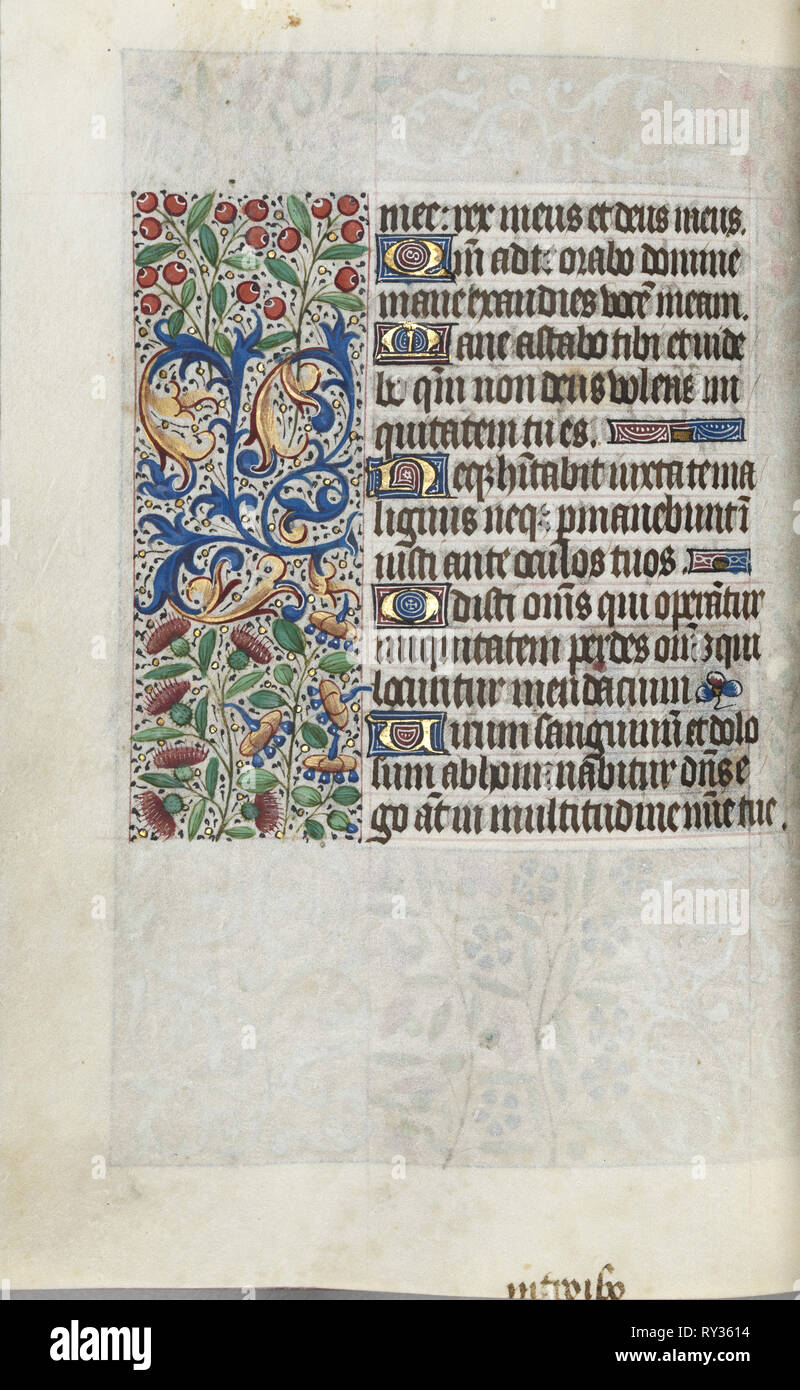 mee: rex meus et deus meus.
Qm̄ ad te orabo domine
mane exaudies vocē meam.
Mane astabo tibi et vide
bo qm̄ non deus volens ini
quitatem tu es.
Neqꝫ hītabit iuxta te ma
lignus neqꝫ pmanebunt ī
iusti ante oculos tuos.
Odisti om̄s qui operātur
iniquitatem perdes om̄s qui
locuntur mendacium
Uirum sanguinū et dolo
sum abhominabitur dn̄s e
go āt in multitudine mīe tue.
introibo
alamy
alamy
Image ID: RY3614
www.alamy.com